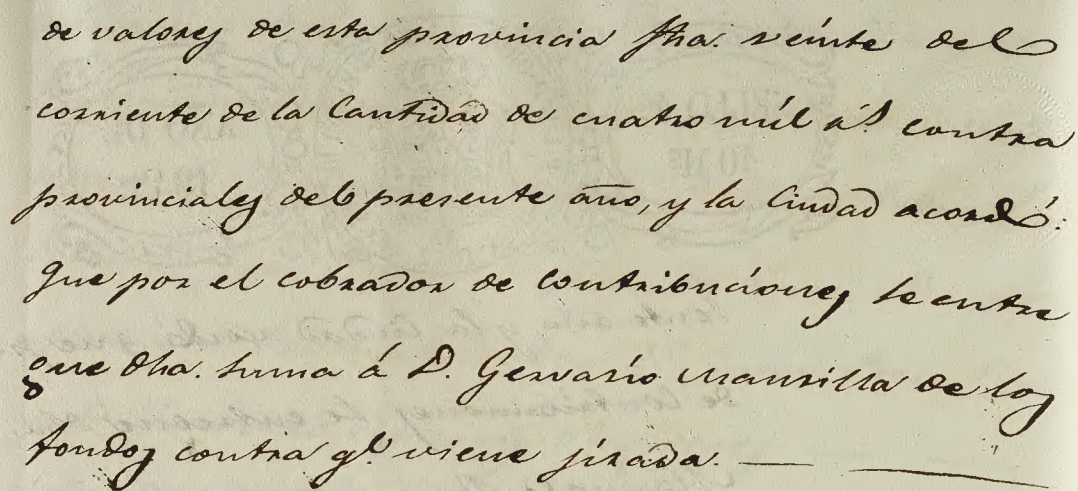 de valores de esta provincia fha. veinte del
corriente de la Cantidad de cuatro mil r.s contra
provinciales del presente año, y la Ciudad acordó:
Que por el cobrador de contribuciones se entre
gue dha. suma á D. Gervasio Mansilla de los
fondos contra q.e viene jirada.